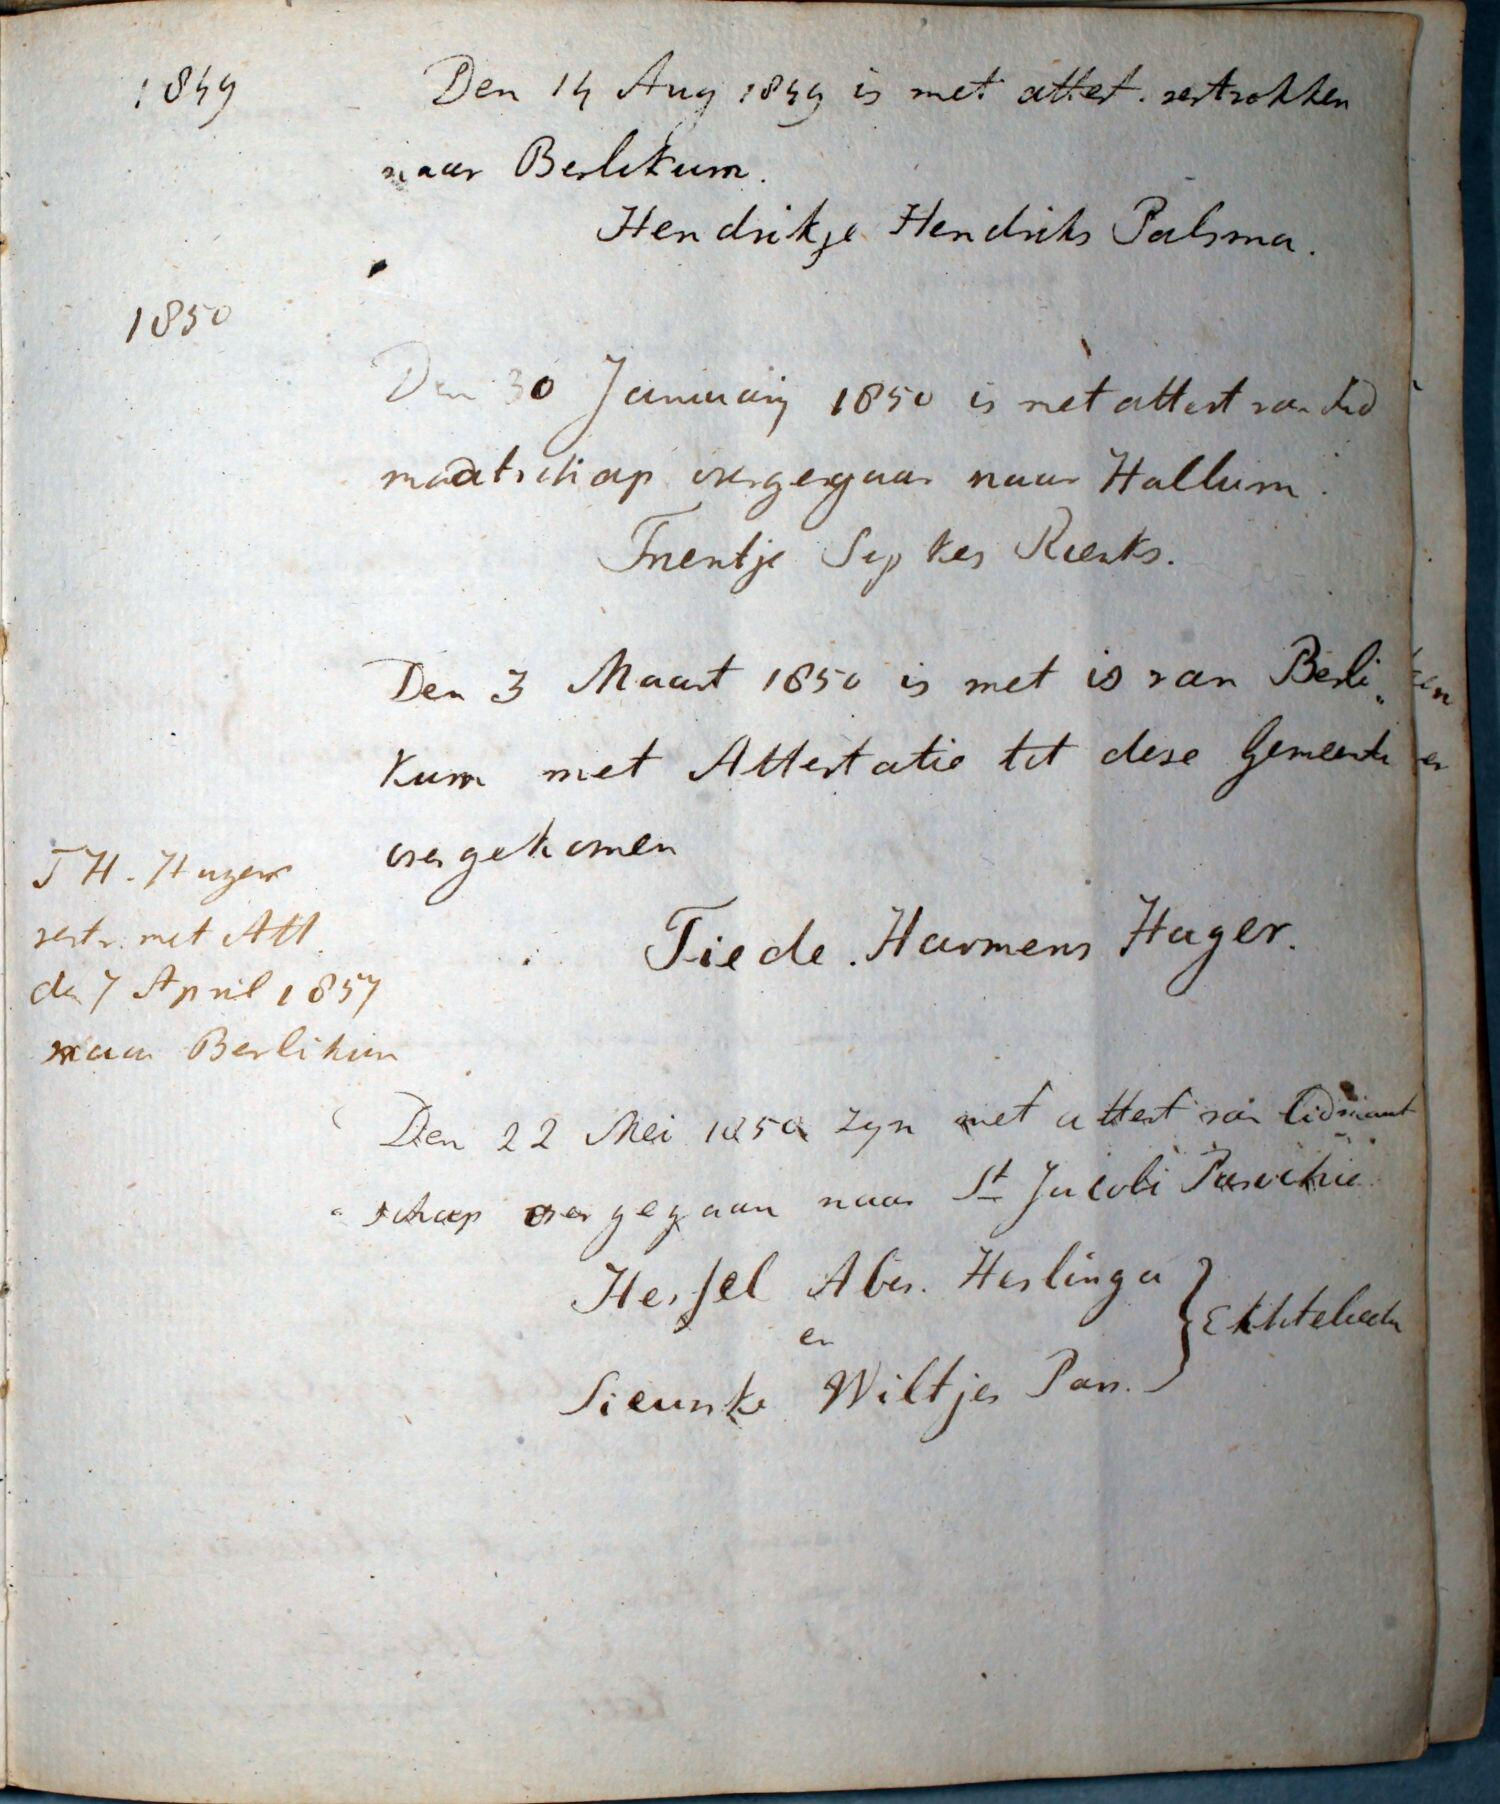 1849
Den 14 Aug 1849 is met attest. vertrokken
naar Berlikum.
Hendrikje Hendriks Palsma.
1850
Den 30 January 1850 is met attest van Lid
maatschap overgegaan naar Hallum.
Trientje Sipkes Rienks.
Den 3 Maart 1850 is met is van Berli„
kum met Attestatie tot deze Gemeente
overgekomen
Tiede Harmens Hager.
T H. Hager
vertr. met Att.
den 7 April 1857
naar Berlikum
Den 22 Mei 1850 zyn met attest van Lidmaat
schap overgegaan naar St Jacobi Parochie
Hessel Abes. Heslinga
en
Sieuwke Wiltjes Pars.
Echtelieden